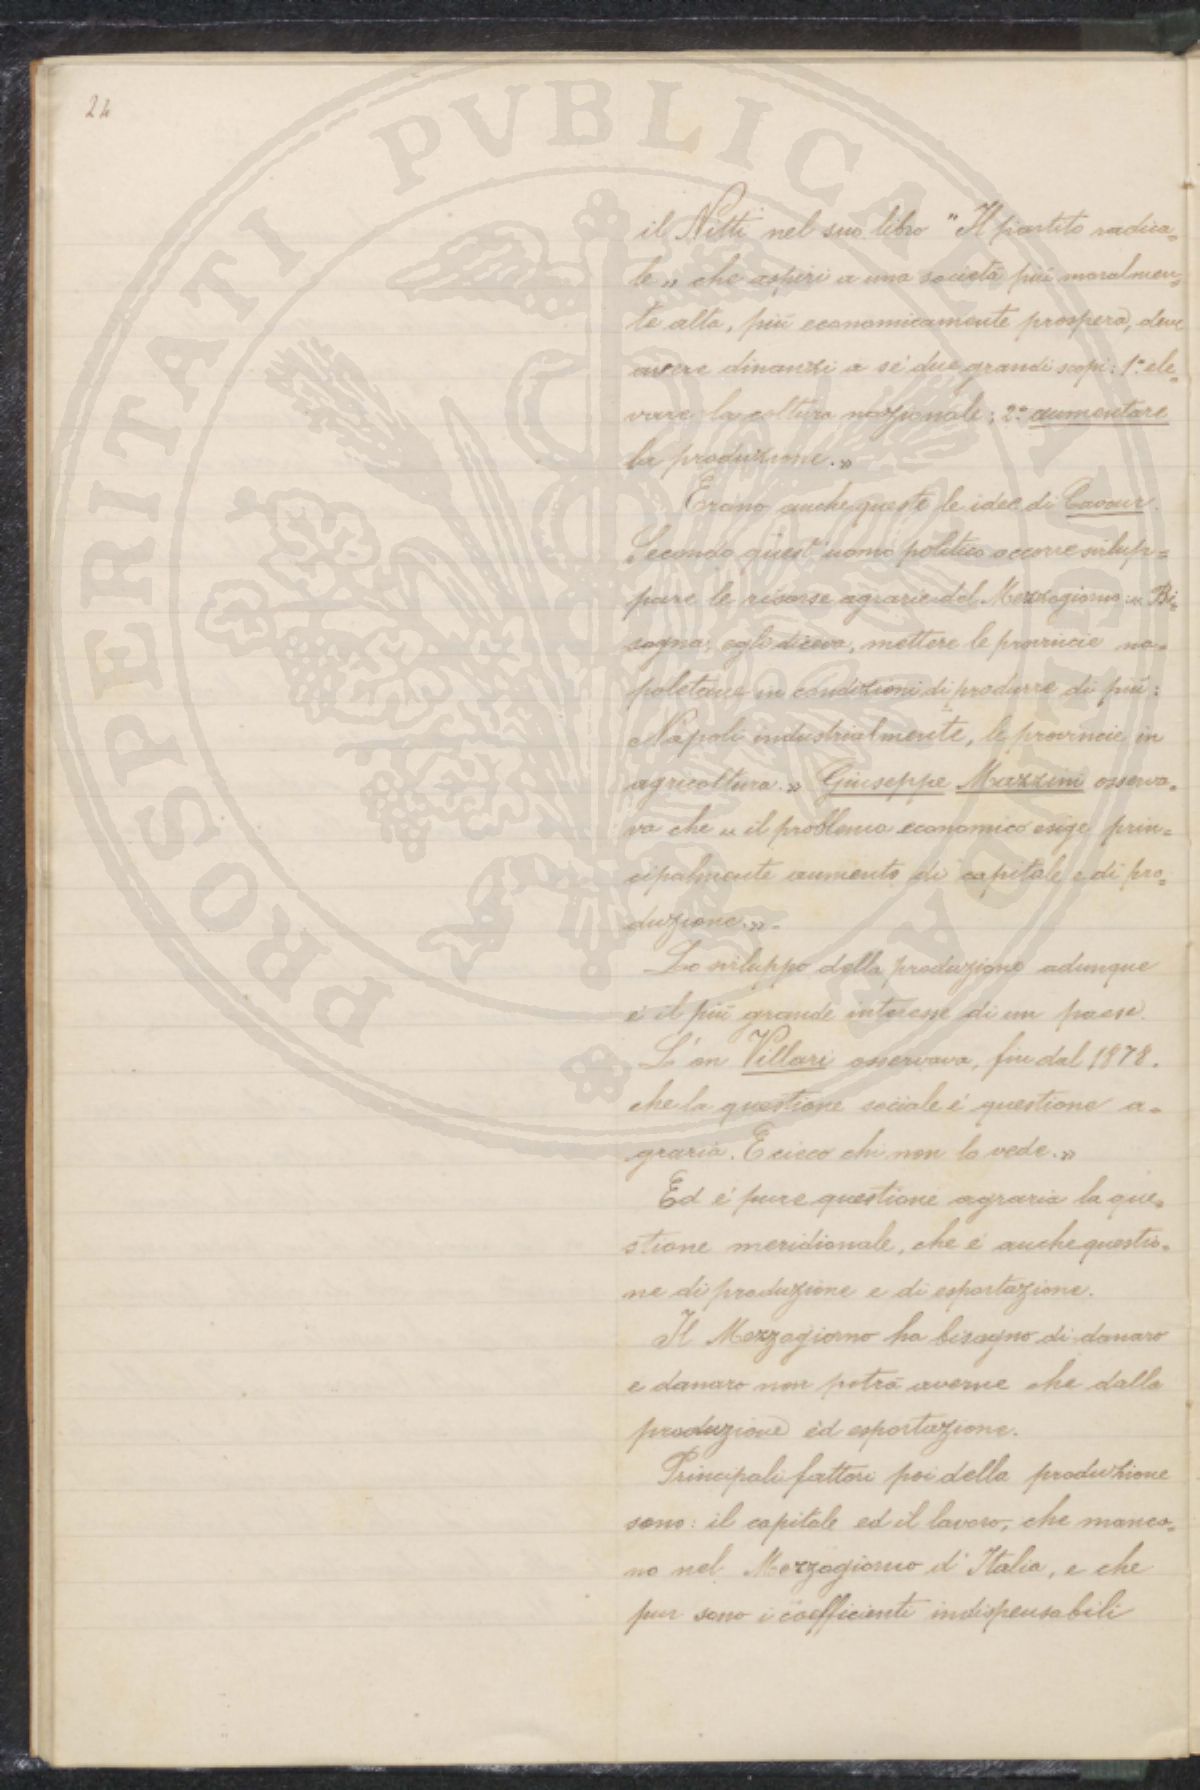 24
PROSPERITATI PVBLICAE AVGENDAE
il Nitti nel suo libro "Il partito radica=
le„ che aspiri a una società più moralmen=
te alta, più economicamente prospera, deve
avere dinanzi a sé due grandi scopi: 1° ele=
vare la coltura nazionale; 2° aumentare
la produzione.»
Erano anche queste le idee di Cavour.
Secondo quest'uomo politico occorre svilup=
pare le risorse agrarie del Mezzogiorno: « Bi=
sogna, egli diceva, mettere le provincie na=
poletane in condizioni di produrre di più:
Napoli industrialmente, le provincie in
agricoltura.» Giuseppe Mazzini osserva=
va che « il problema economico esige prin=
cipalmente aumento di capitale e di pro=
duzione.»=
Lo sviluppo della produzione adunque
é il più grande interesse di un paese.
L'on Villari osservava, fin dal 1878.
che la questione sociale é questione a=
graria. E cieco chi non la vede.»
Ed é pure questione agraria la que=
stione meridionale, che é anche questio=
ne di produzione e di esportazione.
Il Mezzogiorno ha bisogno di danaro
e danaro non potrà averne che dalla
produzione ed esportazione.
Principali fattori poi della produzione
sono: il capitale ed il lavoro, che manca=
no nel Mezzogiorno d'Italia, e che
pur sono i coefficienti indispensabili